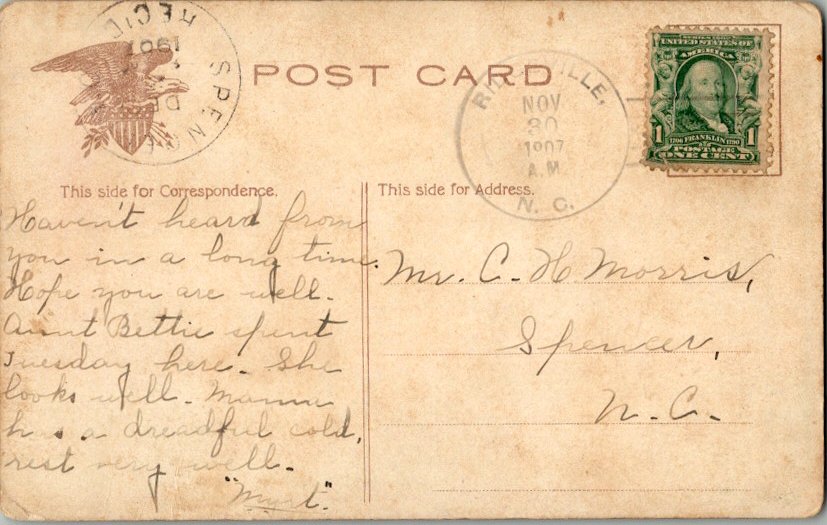 SPENC
REC'D
1907
POST CARD
NOV
30
1907
A.M.
N. C.
UNITED STATES OF
AMERICA
1 1706 FRANKLIN 1790 1
POSTAGE
ONE CENT
This side for Correspondence.
Haven't heard from
you in a long time.
Hope you are well.
Aunt Bettie spent
Tuesday here. She
looks well. Mamma
has a dreadful cold,
rest very well.
This side for Address.
Mr. C. H. Morris,
Spencer,
N. C.